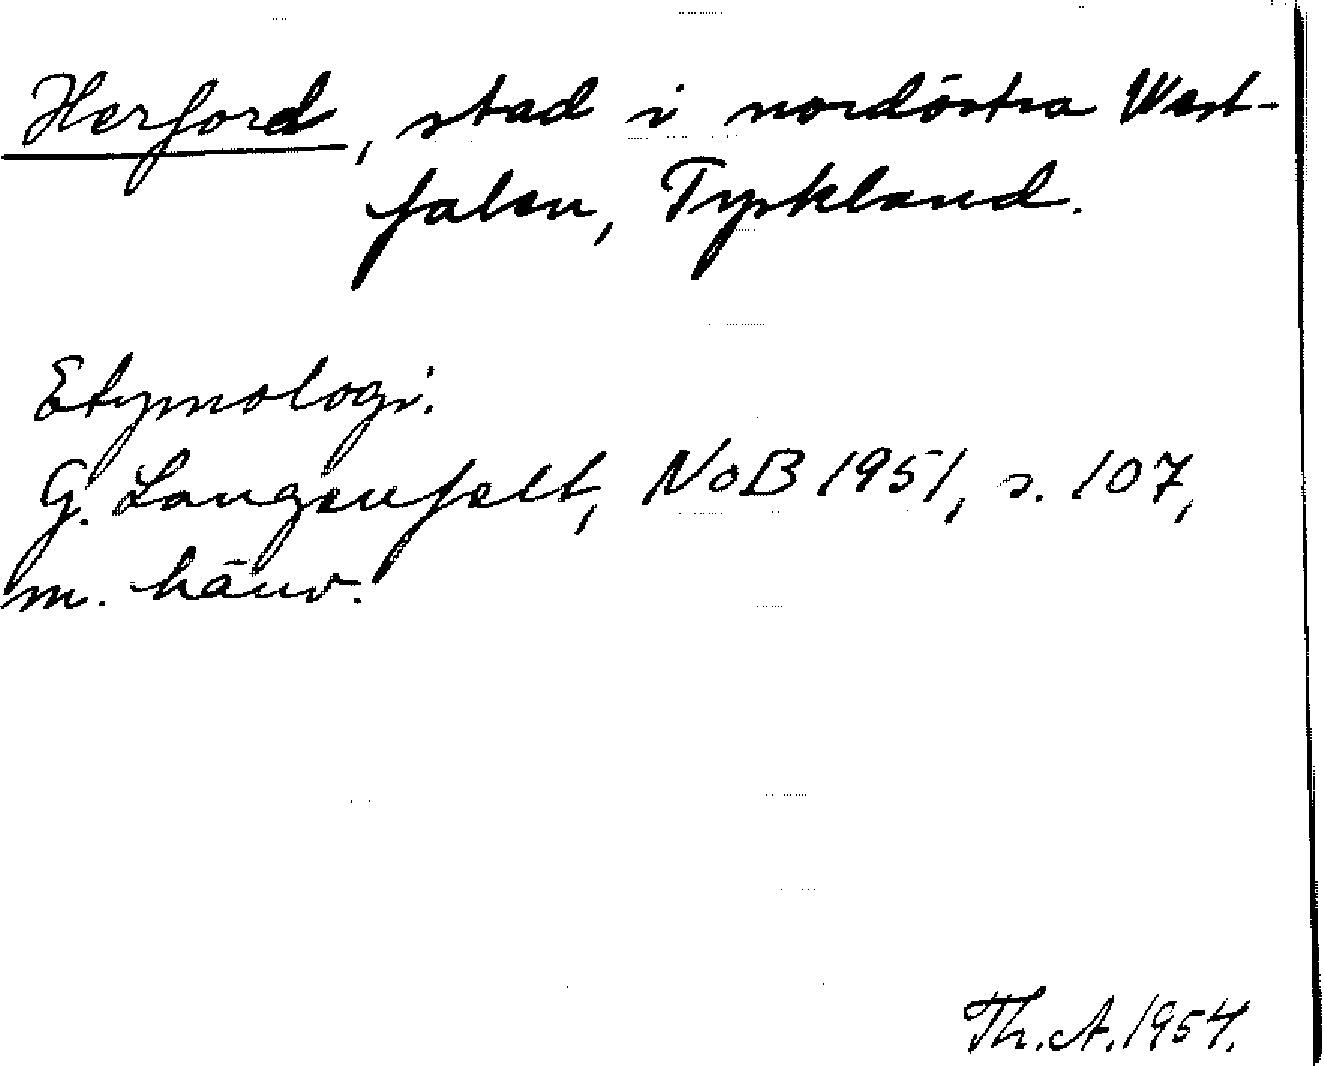 Herford, stad i nordöstra West-
falen, Tyskland.
Etymologi.
G. Langenfelt, NoB 1951, s. 107,
m. hänv.
Th. A. 1954.